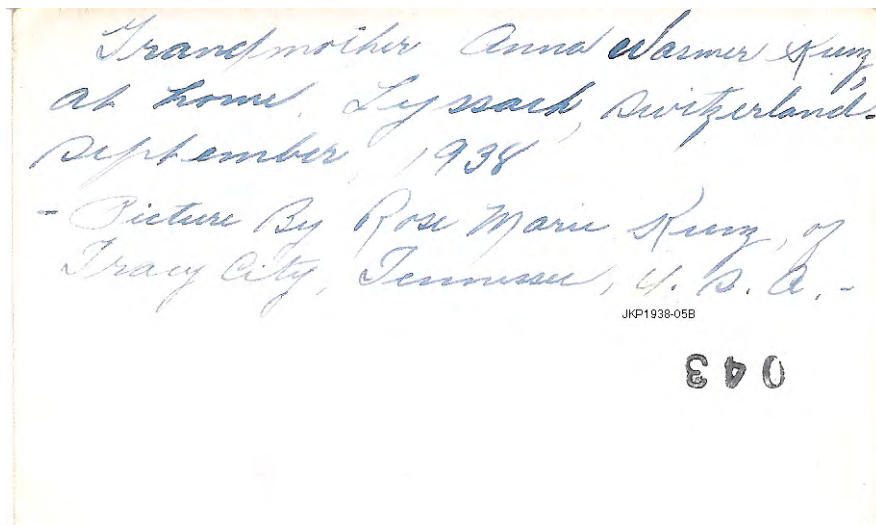 Grandmother Anna Wasmer Kunz,
at home. Lyssach, Switzerland-
September, 1938
- Picture By Rose Marie Kunz, of
Tracy City, Tennessee, U. S. A. -
JKP1938-05B
043